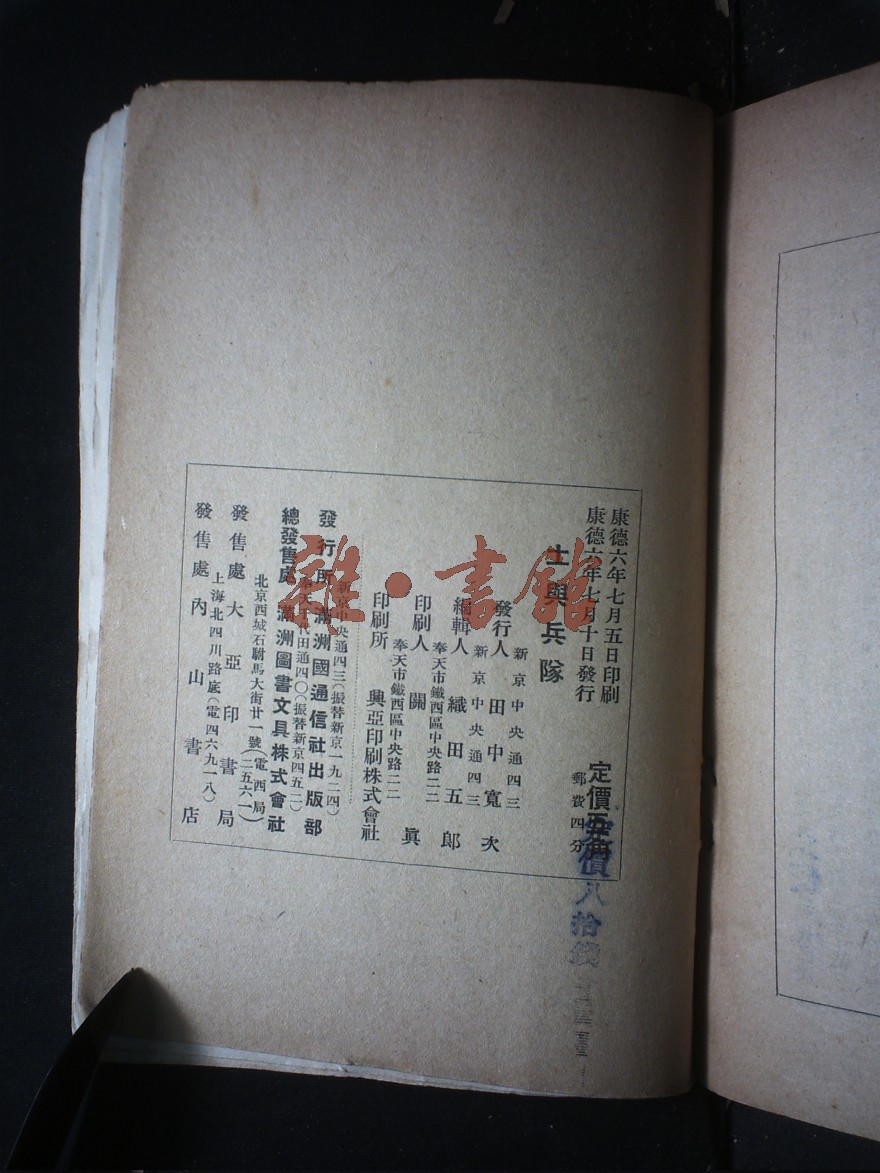 康德六年七月五日印刷
康德六年七月十日發行
定價五角
郵費四分
土與兵隊
新京中央通四三
發行人 田中寬次
新京中央通四三
編輯人 織田五郎
奉天市鐵西區中央路二二
印刷人 關 眞
奉天市鐵西區中央路二二
印刷所 興亞印刷株式會社
新京中央通四三(振替新京一九二四)
發行所 滿洲國通信社出版部
奉天千代田通四〇(振替新京四五二)
總發售處 滿洲圖書文具株式會社
北京西城石駙馬大街廿一號(電西局二五六一)
發售處 大亞印書局
上海北四川路底(電四六九一八)
發售處 內山書店
定價八拾錢
雜·書館